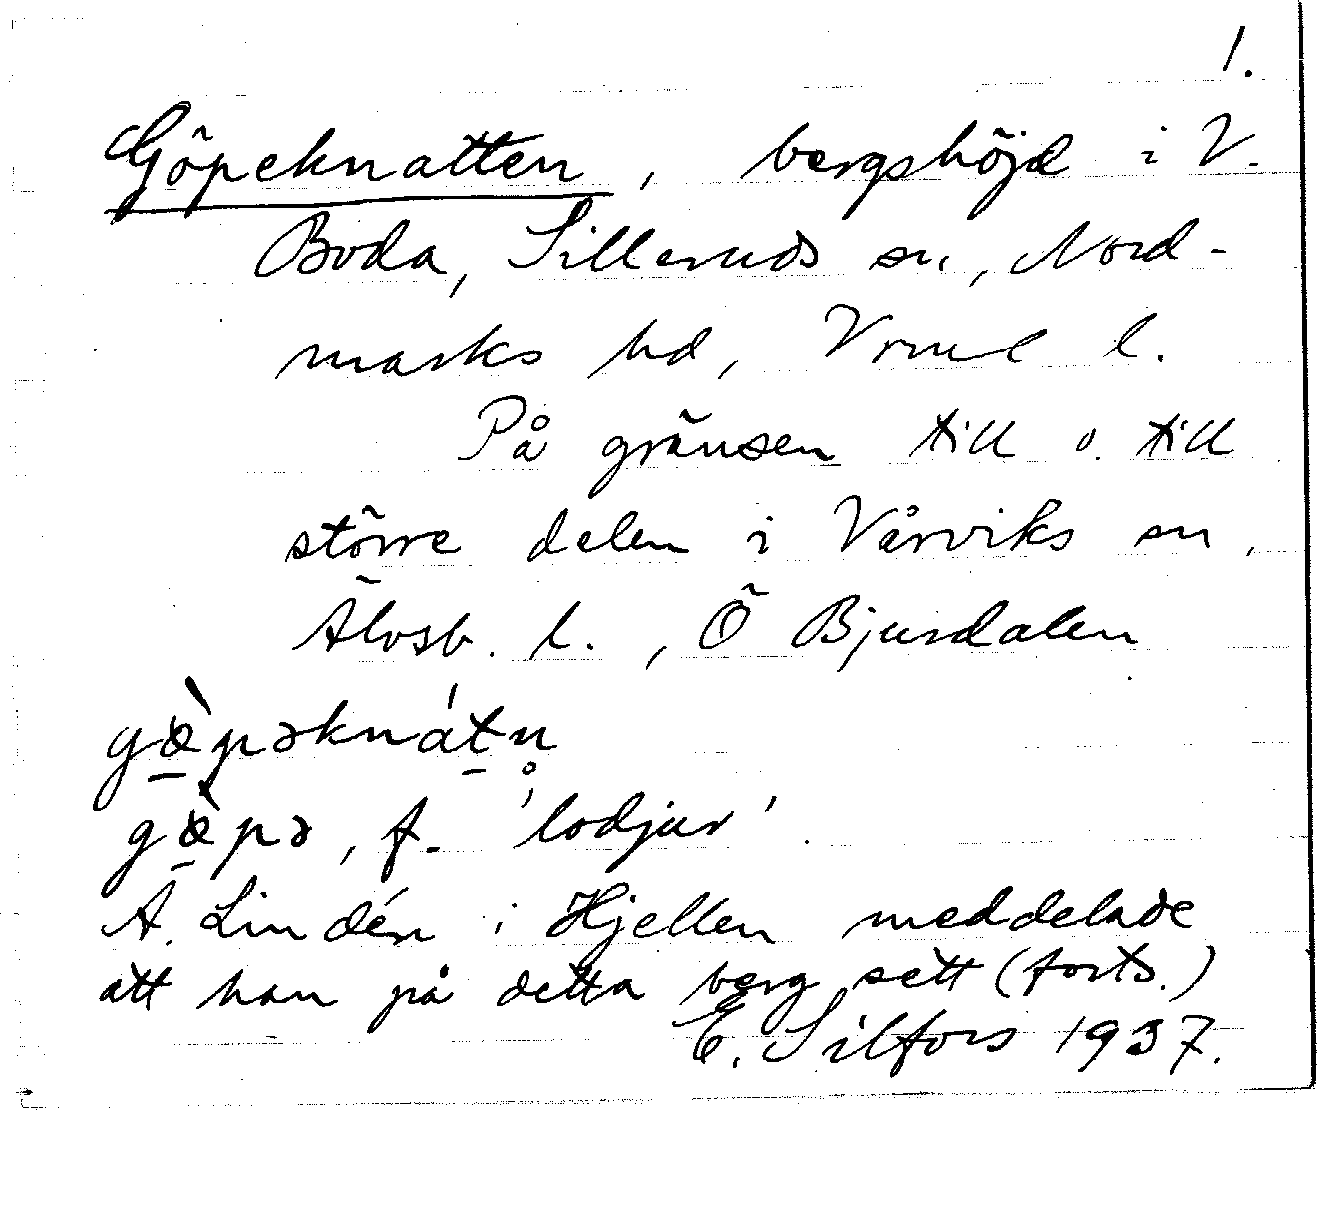 1.
Göpeknatten, bergshöjd i V.
Boda, Silleruds sn, Nord-
marks hd, Vrml l.
På gränsen till o. till
större delen i Vårviks sn,
Älvsb. l., Ö Bjursdalen
gæ̀pəknátn̥
gæ̀pə, f. 'lodjur'.
A. Lindén i Hjellen meddelade
att han på detta berg sett (forts.)
E. Silfors 1937.